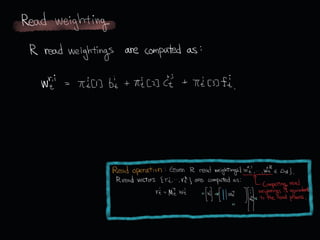 Read weighting
R read weightings are computed as:
w_t^{r,i} = π_t^i[1] b_t^i + π_t^i[2] c_t^{r,i} + π_t^i[3] f_t^i.
Read operation: Given R read weightings
Read vectors {r_t^1, …, r_t^R} are computed as:
Computing read weightings is equivalent to the head phases.